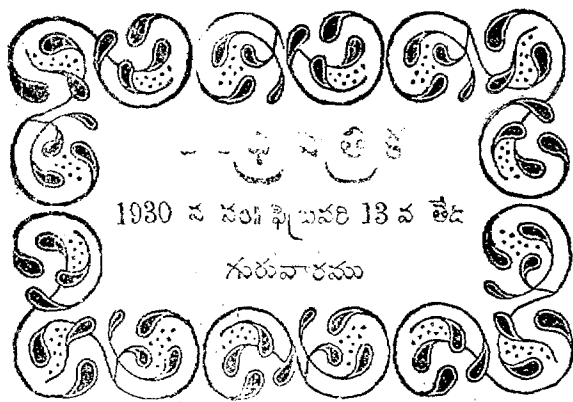 1930 న సం॥ ఫిబ్రువరి 13 వ తేది
గురువారము